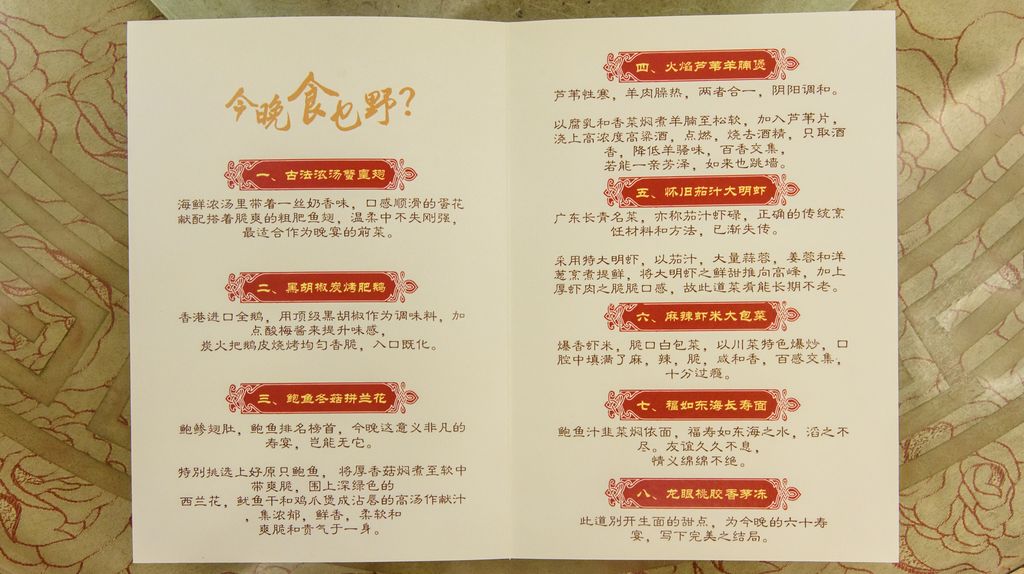 今晚食乜野？
一、古法浓汤蟹皇翅
海鲜浓汤里带着一丝奶香味，口感顺滑的蛋花
献配搭着脆爽的粗肥鱼翅，温柔中不失刚强，
最适合作为晚宴的前菜。
二、黑胡椒炭烤肥鹅
香港进口全鹅，用顶级黑胡椒作为调味料，加
点酸梅酱来提升味感，
炭火把鹅皮烧烤均匀香脆，入口既化。
三、鲍鱼冬菇拼兰花
鲍参翅肚，鲍鱼排名榜首，今晚这意义非凡的
寿宴，岂能无它。
特别挑选上好原只鲍鱼， 将厚香菇焖煮至软中
带爽脆，围上深绿色的
西兰花，鱿鱼干和鸡爪煲成沾唇的高汤作献汁
，集浓郁，鲜香，柔软和
爽脆和贵气于一身。
四、火焰芦苇羊腩煲
芦苇性寒，羊肉臊热，两者合一，阴阳调和。
以腐乳和香菜焖煮羊腩至松软，加入芦苇片，
浇上高浓度高粱酒，点燃，烧去酒精，只取酒
香，降低羊骚味，百香交集，
若能一亲芳泽，如来也跳墙。
五、怀旧茄汁大明虾
广东长青名菜，亦称茄汁虾碌，正确的传统烹
饪材料和方法，已渐失传。
采用特大明虾，以茄汁，大量蒜蓉，姜蓉和洋
葱烹煮提鲜，将大明虾之鲜甜推向高峰，加上
厚虾肉之脆脆口感，故此道菜肴能长期不老。
六、麻辣虾米大包菜
爆香虾米，脆口白包菜，以川菜特色爆炒，口
腔中填满了麻，辣，脆，咸和香，百感交集，
十分过瘾。
七、福如东海长寿面
鲍鱼汁韭菜焖依面，福寿如东海之水，滔之不
尽。友谊久久不息，
情义绵绵不绝。
八、龙眼桃胶香茅冻
此道别开生面的甜点，为今晚的六十寿
宴，写下完美之结局。